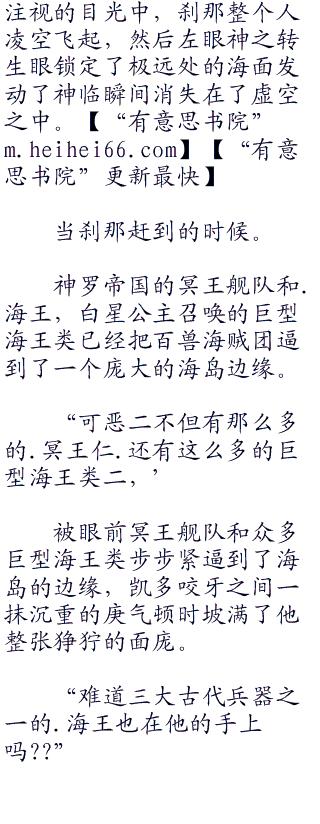 注视的目光中，刹那整个人
凌空飞起，然后左眼神之转
生眼锁定了极远处的海面发
动了神临瞬间消失在了虚空
之中。【“有意思书院”
m.heihei66.com】【“有意
思书院”更新最快】
当刹那赶到的时候。
神罗帝国的冥王舰队和.
海王，白星公主召唤的巨型
海王类已经把百兽海贼团逼
到了一个庞大的海岛边缘。
“可恶二不但有那么多
的.冥王仁.还有这么多的巨
型海王类二，’
被眼前冥王舰队和众多
巨型海王类步步紧逼到了海
岛的边缘，凯多咬牙之间一
抹沉重的庚气顿时坡满了他
整张狰狞的面庞。
“难道三大古代兵器之
一的.海王也在他的手上
吗??”